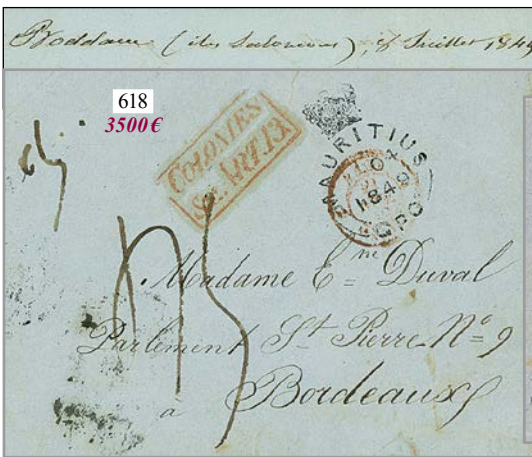 Boddam (iles Salomon), 8 Juillet 1849
618
3500€
COLONIES
&c. ART. 13
MAURITIUS
1849
G.P.O
Madame E = Duval
Parlement St Pierre Nº 9
à Bordeaux